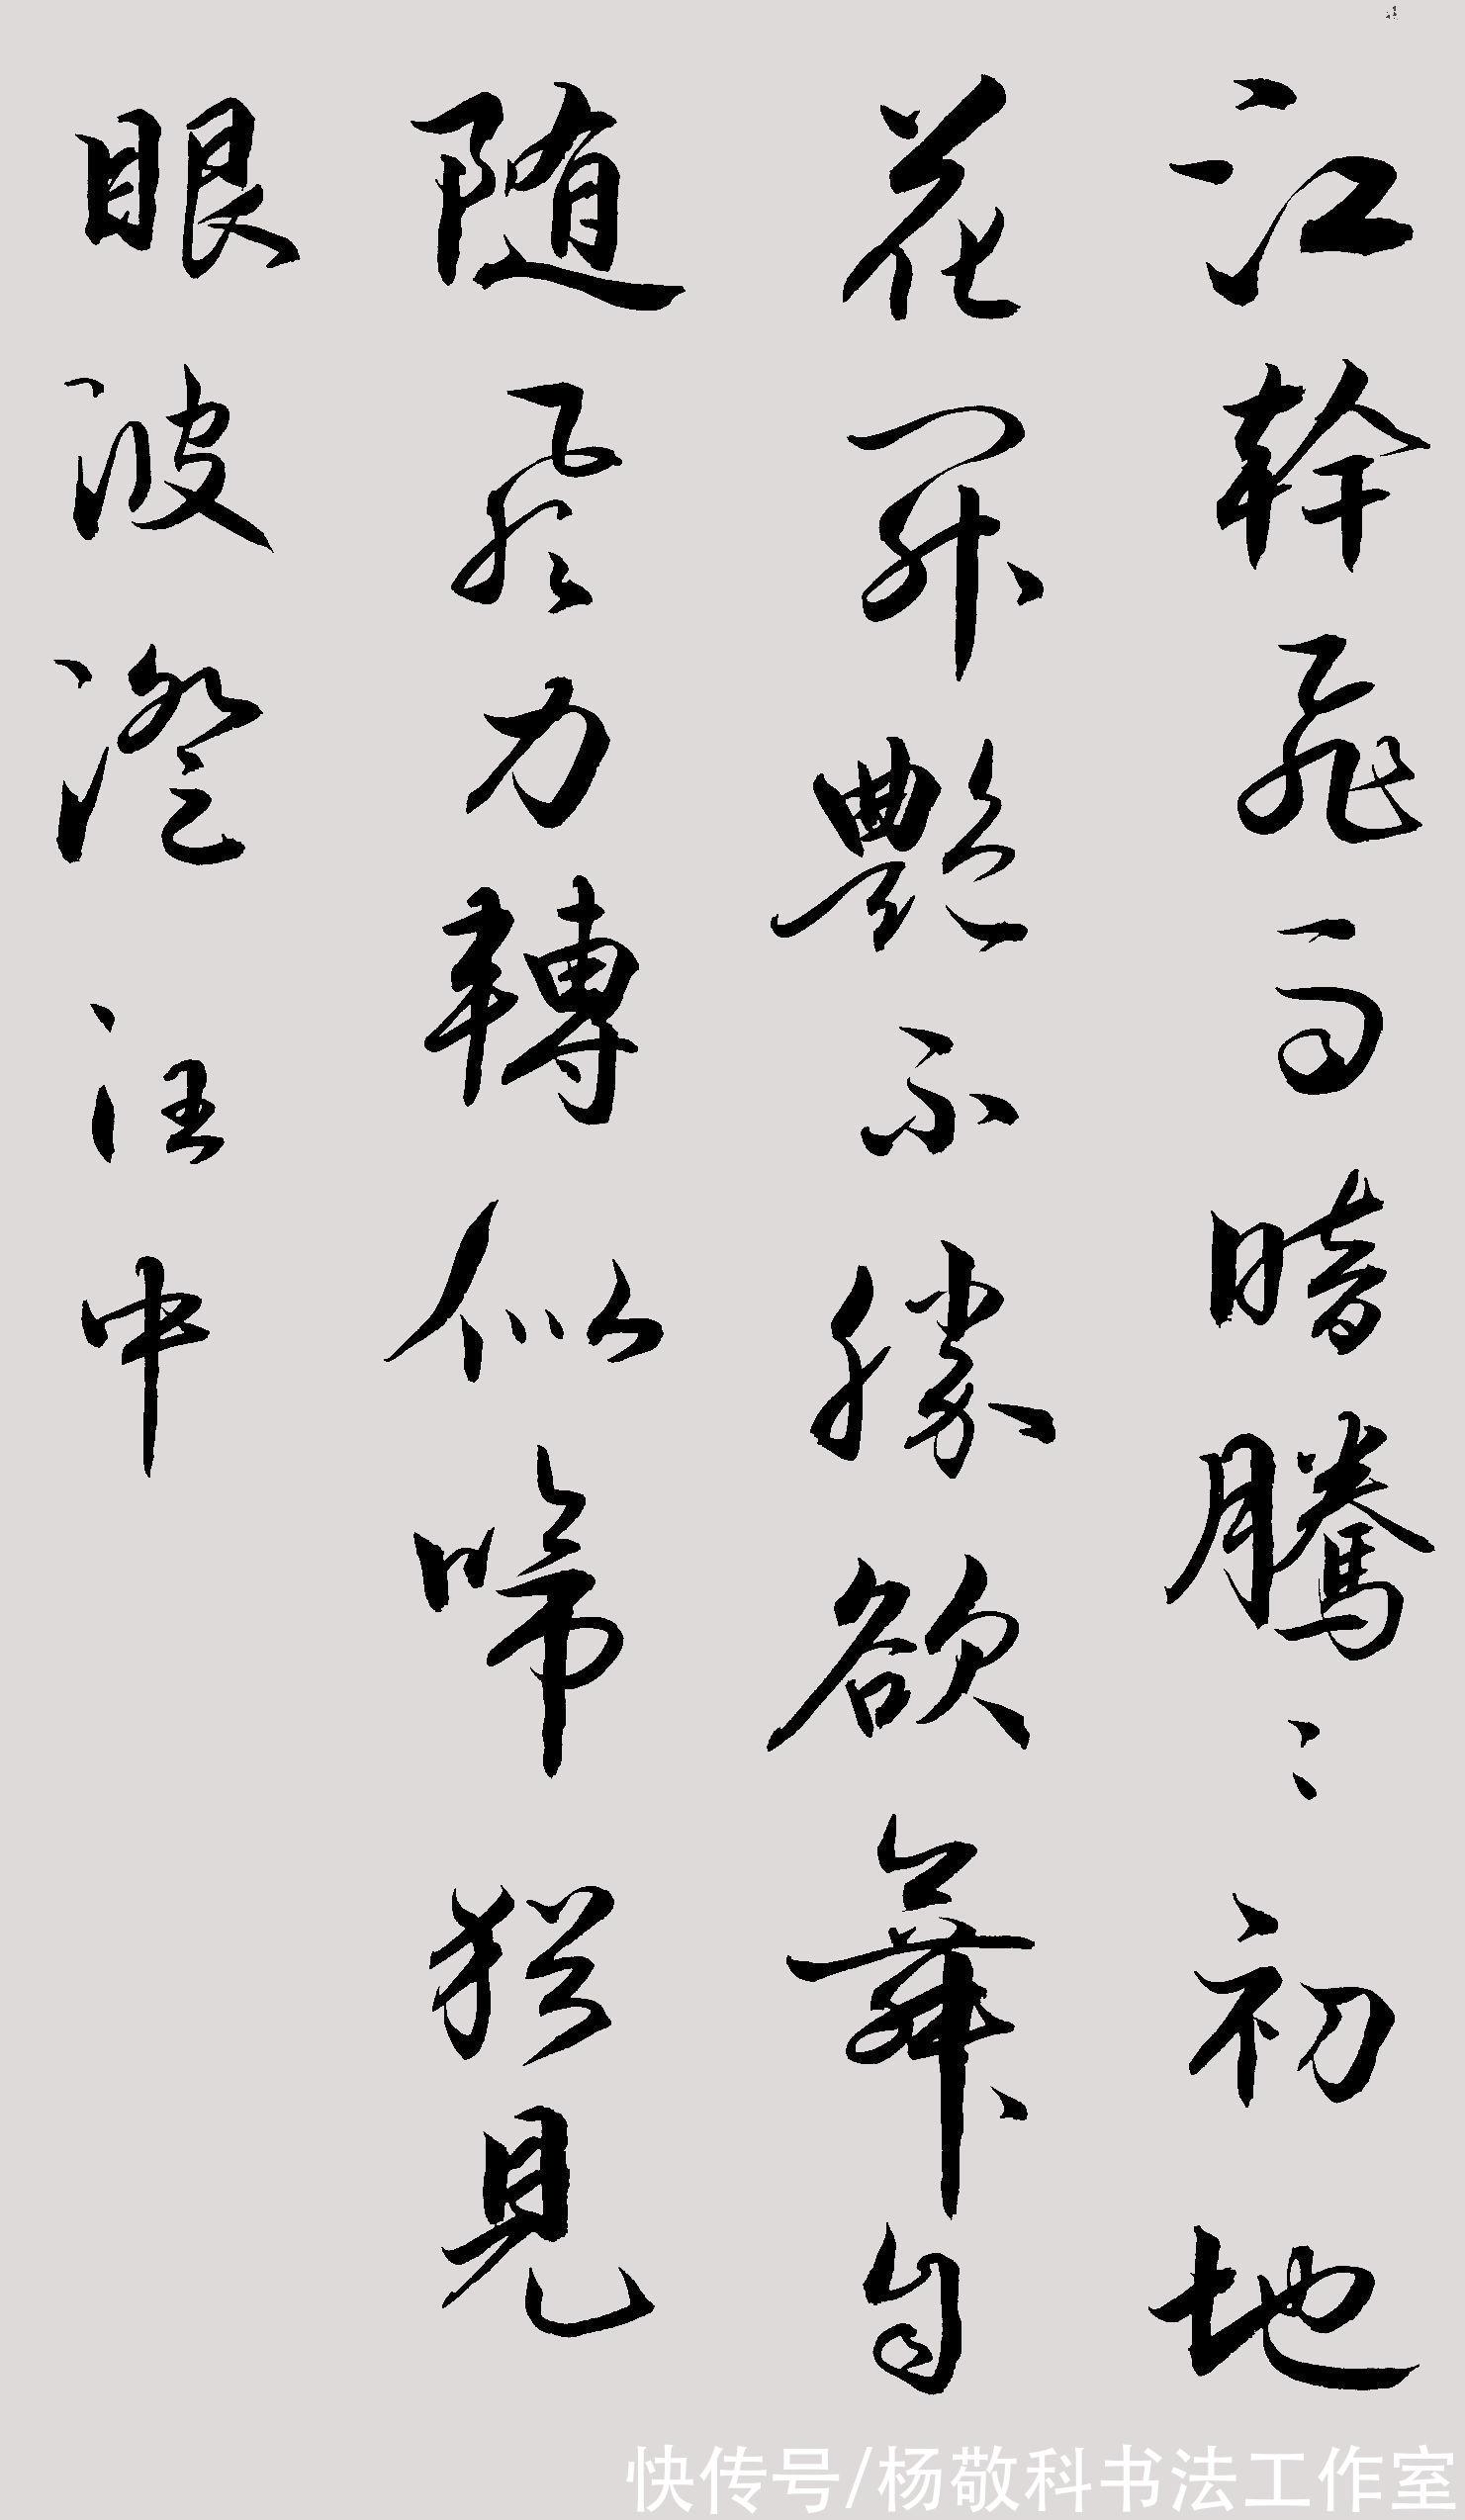 江幹飛雨暗騰〻初地
花開艷不勝欲舞自
隨風力轉似啼猶見
眼波澄汪中
快传号/杨敬科书法工作室